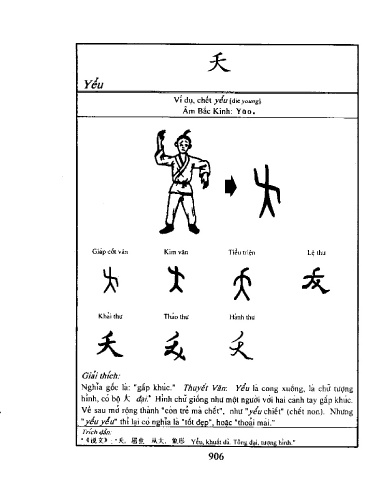 夭
Yếu
Ví dụ, chết yếu (die young)
Âm Bắc Kinh: Yāo.
Giáp cốt văn Kim văn Tiểu triện Lệ thư
Khải thư Thảo thư Hành thư
夭
Giải thích:
Nghĩa gốc là: "gấp khúc." Thuyết Văn: Yếu là cong xuống, là chữ tượng
hình, có bộ 大 đại." Hình chữ giống như một người với hai cánh tay gấp khúc.
Về sau mở rộng thành "còn trẻ mà chết", như "yếu chiết" (chết non). Nhưng
"yếu yếu" thì lại có nghĩa là "tốt đẹp", hoặc "thoải mái."
Trích dẫn:
"《说文》: "夭, 屈也. 从大, 象形 Yếu, khuất dã. Tòng đại, tượng hình."
906